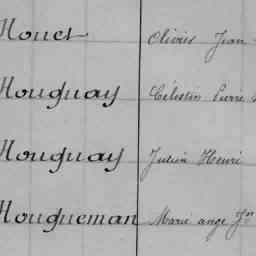 Nouet Olivier Jean
Nouguay Célestin Pierre
Nouguay Julien Henri
Nougueman Marie ange Jn